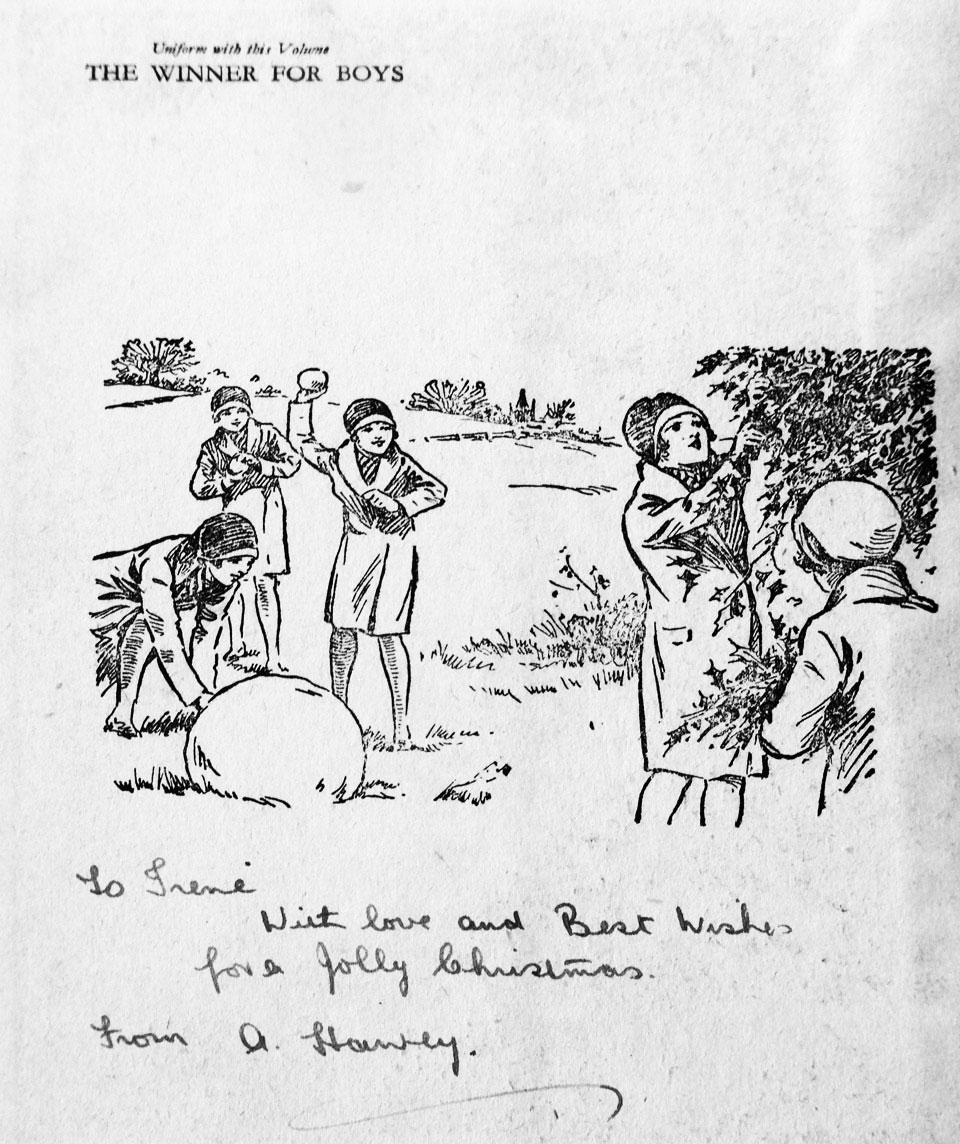 Uniform with this Volume
THE WINNER FOR BOYS
To Irene
With love and Best Wishes
for a Jolly Christmas.
From A.